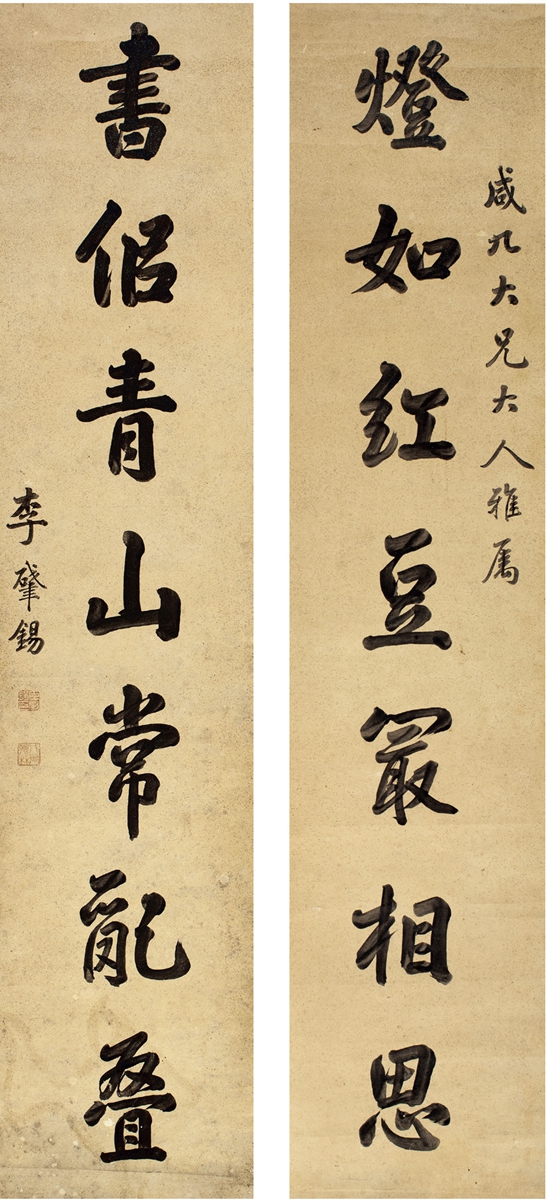 咸九大兄大人雅屬
燈如紅豆冣相思
書佀青山常亂叠
李肇錫